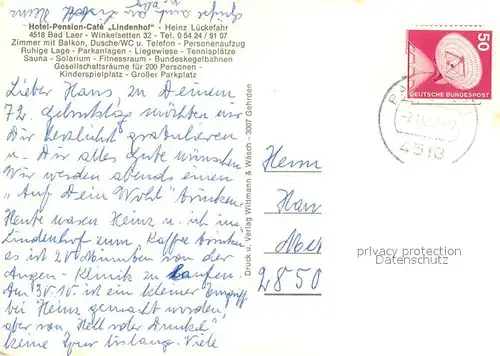 Hotel-Pension-Café „Lindenhof" - Heinz Lückefahr
4518 Bad Laer - Winkelsetten 32 - Tel. 0 54 24 / 91 07
Zimmer mit Balkon, Dusche/WC u. Telefon - Personenaufzug
Ruhige Lage - Parkanlagen - Liegewiese - Tennisplätze
Sauna - Solarium - Fitnessraum - Bundeskegelbahnen
Gesellschaftsräume für 200 Personen -
Kinderspielplatz - Großer Parkplatz
Lieber Hans, zu Deinem
72. Geburtstag möchten wir
Dir herzlichst gratulieren
u. Dir alles Gute wünschen
Wir werden abends einen
„Auf Dein Wohl" trinken.
Heute waren Heinz u. ich im
Lindenhof zum Kaffee trinken
es ist 20 Minuten von der
Augen-Klinik zu laufen.
Am 30.10. ist ein kleiner Eingriff
bei Heinz gemacht worden,
aber von „Hell oder Dunkel"
keine Spur bislang. Viele
Druck u. Verlag Wittmann & Wäsch - 3007 Gehrden
50
DEUTSCHE BUNDESPOST
4518
Herrn
Han
Met
2850
privacy protection
Datenschutz